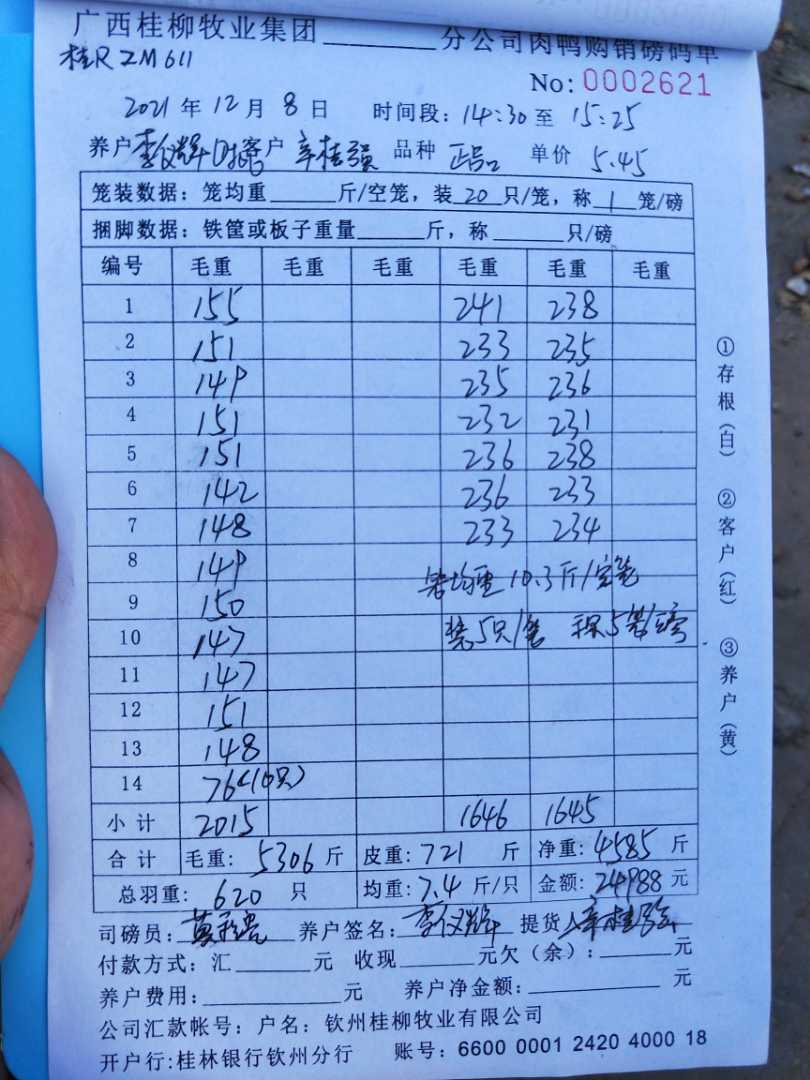 广西桂柳牧业集团________分公司肉鸭购销磅码单
桂RZM611
No: 0002621
2021年12月8日 时间段: 14:30至15:25
养户 李仪辉 客户 辛桂强 品种 正品 单价 5.45
笼装数据: 笼均重______斤/空笼, 装20只/笼, 称1笼/磅
捆脚数据: 铁筐或板子重量______斤, 称______只/磅
编号 毛重 毛重 毛重 毛重 毛重 毛重
1 155 241 238
2 151 233 235
3 149 235 236
4 151 232 231
5 151 236 238
6 142 236 233
7 148 233 234
8 149 笼均重10.3斤/空笼
9 150
10 147 装5只/笼 称5笼/磅
11 147
12 151
13 148
14 76(10只)
小计 2015 1646 1645
合计 毛重: 5306斤 皮重: 721斤 净重: 4585斤
总羽重: 620只 均重: 7.4斤/只 金额: 24988元
司磅员: 养户签名: 李仪辉 提货人 辛桂强
付款方式: 汇______元 收现______元欠(余): ______元
养户费用: ______元 养户净金额: ______元
公司汇款帐号: 户名: 钦州桂柳牧业有限公司
开户行:桂林银行钦州分行 账号: 6600 0001 2420 4000 18
①存根(白) ②客户(红) ③养户(黄)